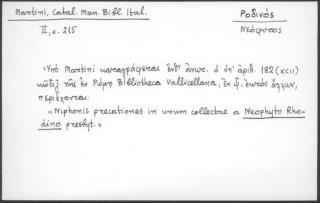 Martini, Catal. Man. Bibl. Ital.
II, σ. 215
Ροδινός
Νεόφυτος
«Υπό Martini καταγράφεται ἔνθ' ἀνωτ. ὁ ὑπ' ἀριθ. 182 (XCII)
κῶδιξ τῆς ἐν Ρώμῃ Bibliotheca Vallicellana, ἐν ᾧ, ἐκτός ἄλλων,
περιέχονται:
«Niphonis precationes in unum collectae a Neophyto Rho-
dino presbyt.»